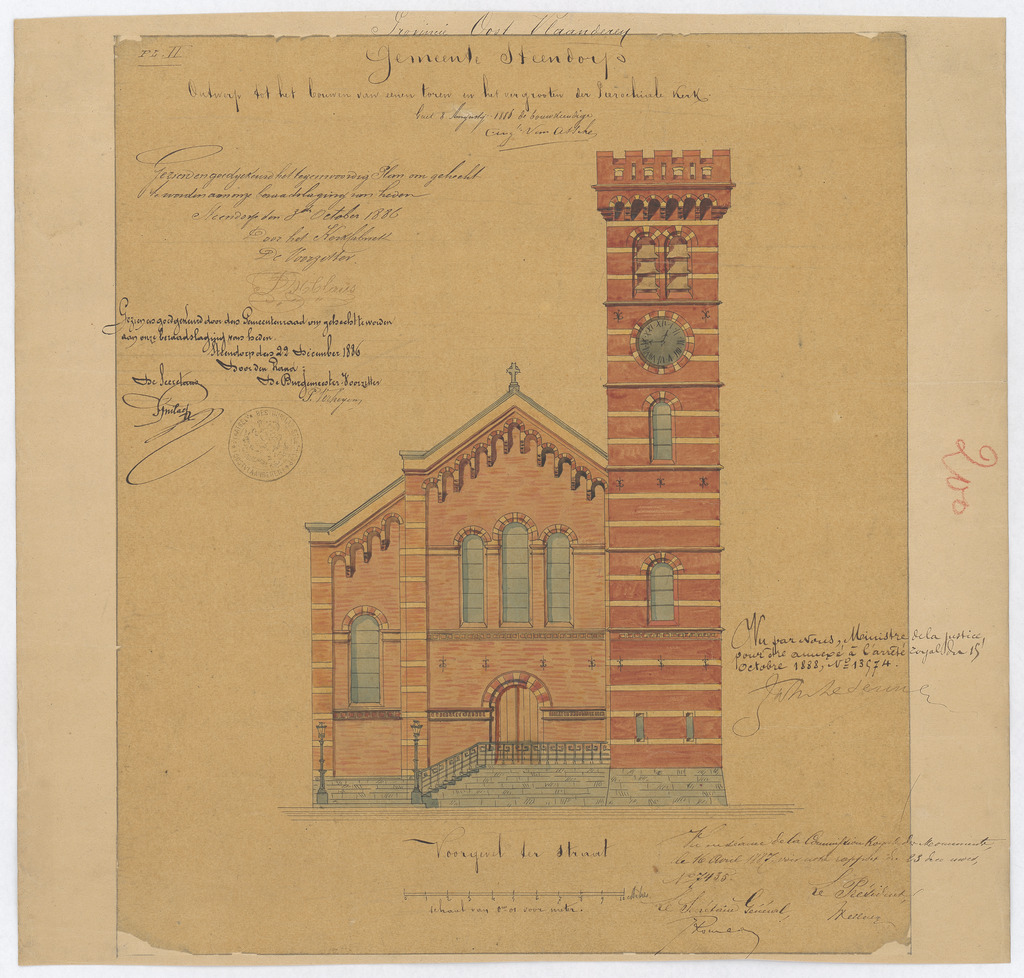 Provincie Oost Vlaanderen
Pl. II.
Gemeente Steendorp
Ontwerp tot het bouwen van eenen toren en het vergrooten der Parochiale Kerk.
Gent 8 1886 de bouwkundige
Van Assche
Gezien en goedgekeurd het tegenwoordig Plan om gehecht
te worden aan onze beraadslaging van heden
Steendorp den 8sten October 1886
Voor het Kerkfabriek
De Voorzitter.
Gezien en goedgekeurd door den Gemeenteraad om gehecht te worden
aan onze beraadslaging van heden.
Steendorp den 22 December 1886
Door den Raad:
De Secretaris
De Burgemeester Voorzitter
Vu par Nous, Ministre de la justice,
pour être annexé à l'arrêté royal du 15
Octobre 1888, No 13974.
200
Voorgevel ter straat
Vu en séance de la Commission Royale des Monuments,
le 16 Avril 1887, notre rapport du 23 dito mois,
No 7435.
Le Secrétaire Général,
Le Président,
Schaal van 0m.01 voor meter.